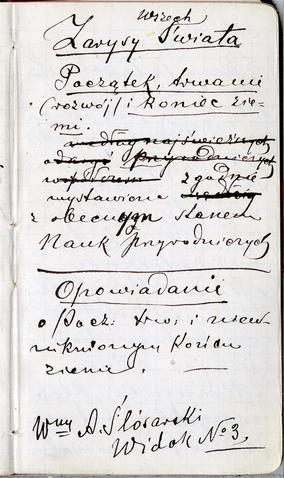 Wszech
Zarysy Świata
Początek, trwanie
(rozwój) i koniec zie-
mi.
według najświeższych
przyrodniczych
zgodnie
wystawione
z obecnym stanem
Nauk przyrodniczych
Opowiadanie
o Pocz: trw: i nieu-
niknionym końcu
ziemi.
Wny A. Ślósarski
Widok No 3